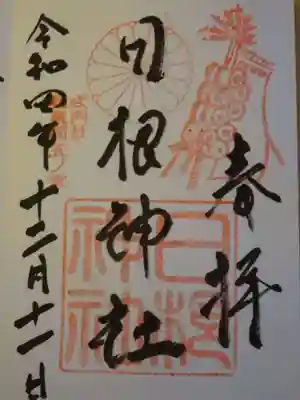 奉拝
日根神社
令和四年十二月十一日